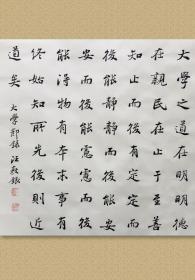 大學之道在明明德
在親民在止于至善
知止而后有定定而
後能靜靜而後能安
安而後能慮慮而後
能得物有本末事有
終始知所先後則近
道矣
大學節錄 汪